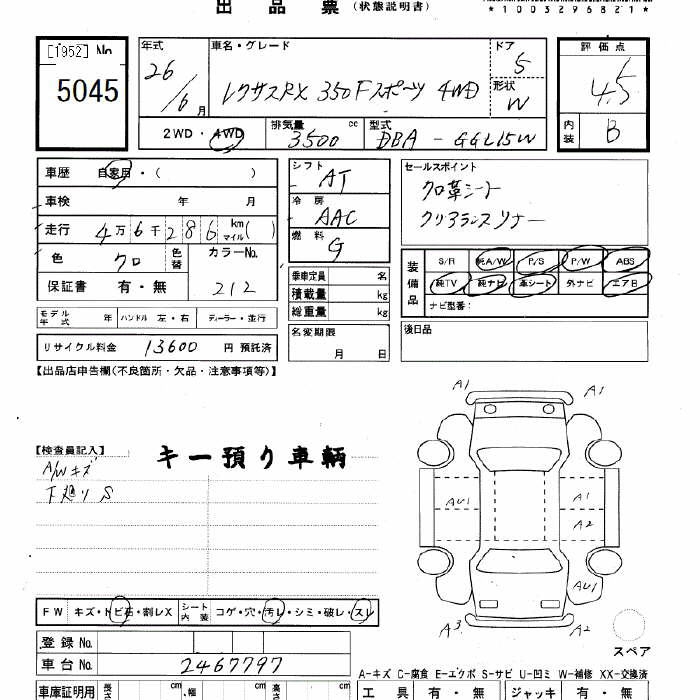 出品票（状態説明書）
*1003296821*
[1952] No.
5045
年式 車名・グレード ドア
26/6月 レクサスRX 350Fスポーツ 4WD 5
形状 W
2WD・4WD 排気量 3500 cc 型式 DBA-GGL15W
評価点
4.5
内装 B
車歴 自家用・( )
車検 年 月
走行 4万6千286 km マイル( )
色 クロ 色替 カラーNo. 212
保証書 有・無
シフト AT
冷房 AAC
燃料 G
乗車定員 名
積載量 kg
総重量 kg
セールスポイント
クロ革シート
クリアランスソナー
装備品 S/R 純A/W P/S P/W ABS
純TV 純ナビ 革シート 外ナビ エアB
ナビ型番:
モデル年式 年 ハンドル 左・右 ディーラー・並行
名変期限 月 日
後日品
リサイクル料金 13600 円 預託済
【出品店申告欄(不良箇所・欠品・注意事項等)】
【検査員記入】
キー預り車輌
A/Wキズ
下廻り S
A1 A1
AU1 A1
A2
AU1
A3 A2
スペア
FW キズ・トビ石・割レX シート内装 コゲ・穴・汚レ・シミ・破レ・スレ
登録 No.
車台 No. 2467797
A-キズ C-腐食 E-エクボ S-サビ U-凹ミ W-補修 XX-交換済
車庫証明用 長さ cm 幅 cm 高さ cm
工具 有・無 ジャッキ 有・無